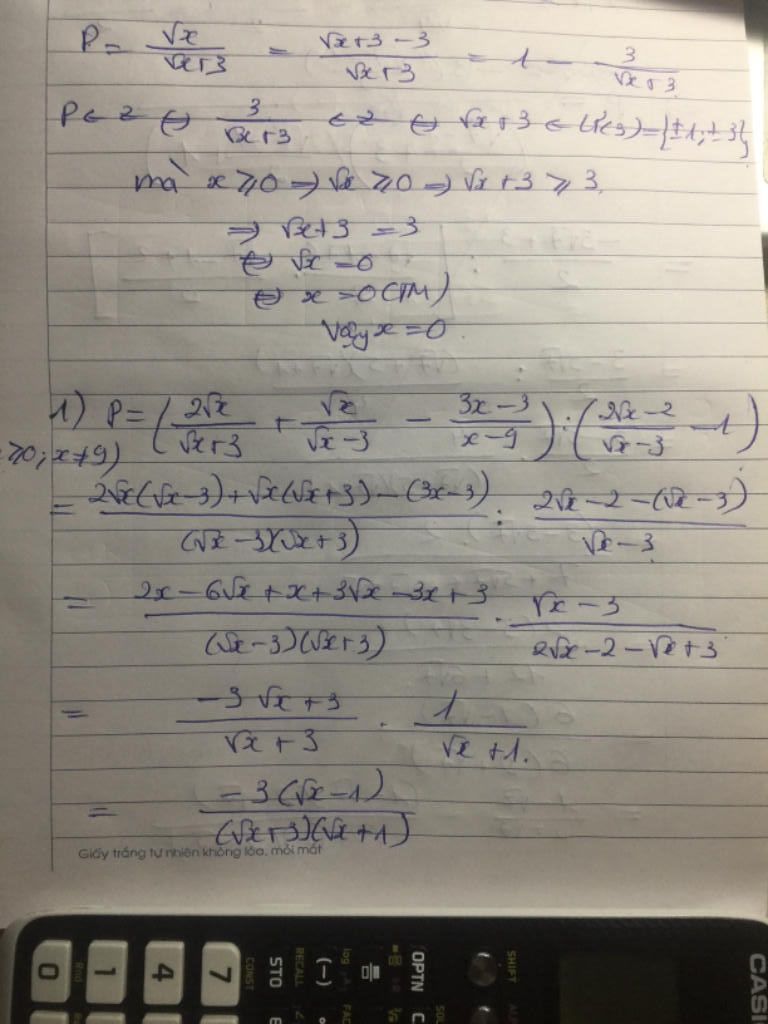 P = √x/(√x+3) = (√x+3-3)/(√x+3) = 1 - 3/(√x+3)
P ∈ Z ⇔ 3/(√x+3) ∈ Z ⇔ √x+3 ∈ Ư(3)={±1;±3}
mà x ≥ 0 ⇒ √x ≥ 0 ⇒ √x + 3 ≥ 3
⇒ √x+3 = 3
⇔ √x = 0
⇔ x = 0 (TM)
Vậy x = 0
1) P = (2√x/(√x+3) + √x/(√x-3) - (3x-3)/(x-9)) : ((2√x-2)/(√x-3) - 1)
≥0; x≠9)
= (2√x(√x-3)+√x(√x+3)-(3x-3))/((√x-3)(√x+3)) : (2√x-2-(√x-3))/(√x-3)
= (2x-6√x+x+3√x-3x+3)/((√x-3)(√x+3)) . (√x-3)/(2√x-2-√x+3)
= (-3√x+3)/(√x+3) . 1/(√x+1)
= -3(√x-1)/((√x+3)(√x+1))
Giấy trắng tự nhiên không lóa, mỏi mắt
0 1 4 7
Rnd CONST RECALL
STO (-) log OPTN
SHIFT
CASI